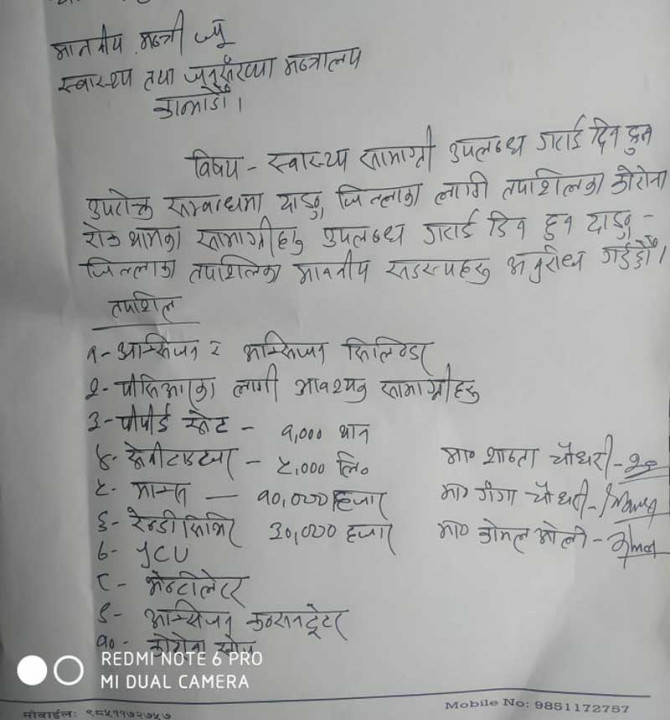 माननीय मन्त्री ज्यू
स्वास्थ्य तथा जनसंख्या मन्त्रालय
काठमाडौं ।
विषय - स्वास्थ्य सामाग्री उपलब्ध गराई दिन हुन
उपरोक्त सम्बन्धमा दाङ जिल्लाका लागी तपाशिलका कोरोना
रोक थामका सामाग्रीहरु उपलब्ध गराई दिन हुन दाङ -
जिल्लाका तपाशिलका माननीय सदस्यहरु अनुरोध गर्दछौं ।
तपाशिल
१- अक्सिजन र अक्सिजन सिलिण्डर
२- पीसिआरका लागी आवश्यक सामाग्रीहरु
३- पीपीई सेट - १,००० थान
४- सेनीटाइजर - ५,००० लि०
५- मास्क — १०,००० हजार
मा० शान्ता चौधरी -
मा० गंगा चौधरी -
६- रेम्डीसिभिर ३०,००० हजार
मा० कोमल ओली -
७- ICU
८- भेन्टीलेटर
९- अक्सिजन कन्सनट्रेटर
१०- कोरोना
REDMI NOTE 6 PRO
MI DUAL CAMERA
मोबाईल: ९८५११७२७५७
Mobile No: 9851172757